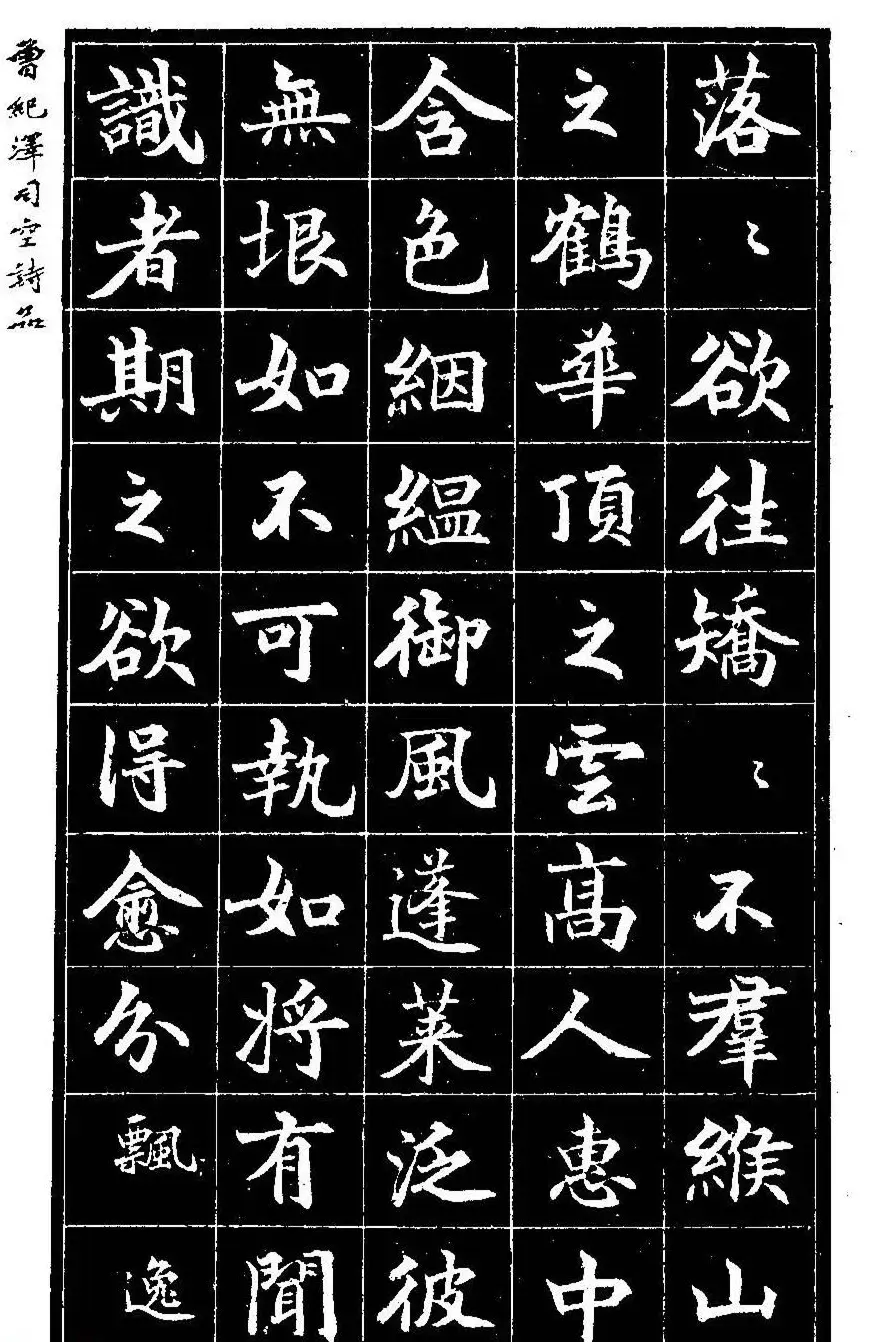 落〻欲往矯〻不羣緱山
之鶴華頂之雲髙人惠中
含色絪縕御風蓬萊泛彼
無垠如不可執如將有聞
識者期之欲得愈分飄逸
曾紀澤司空詩品